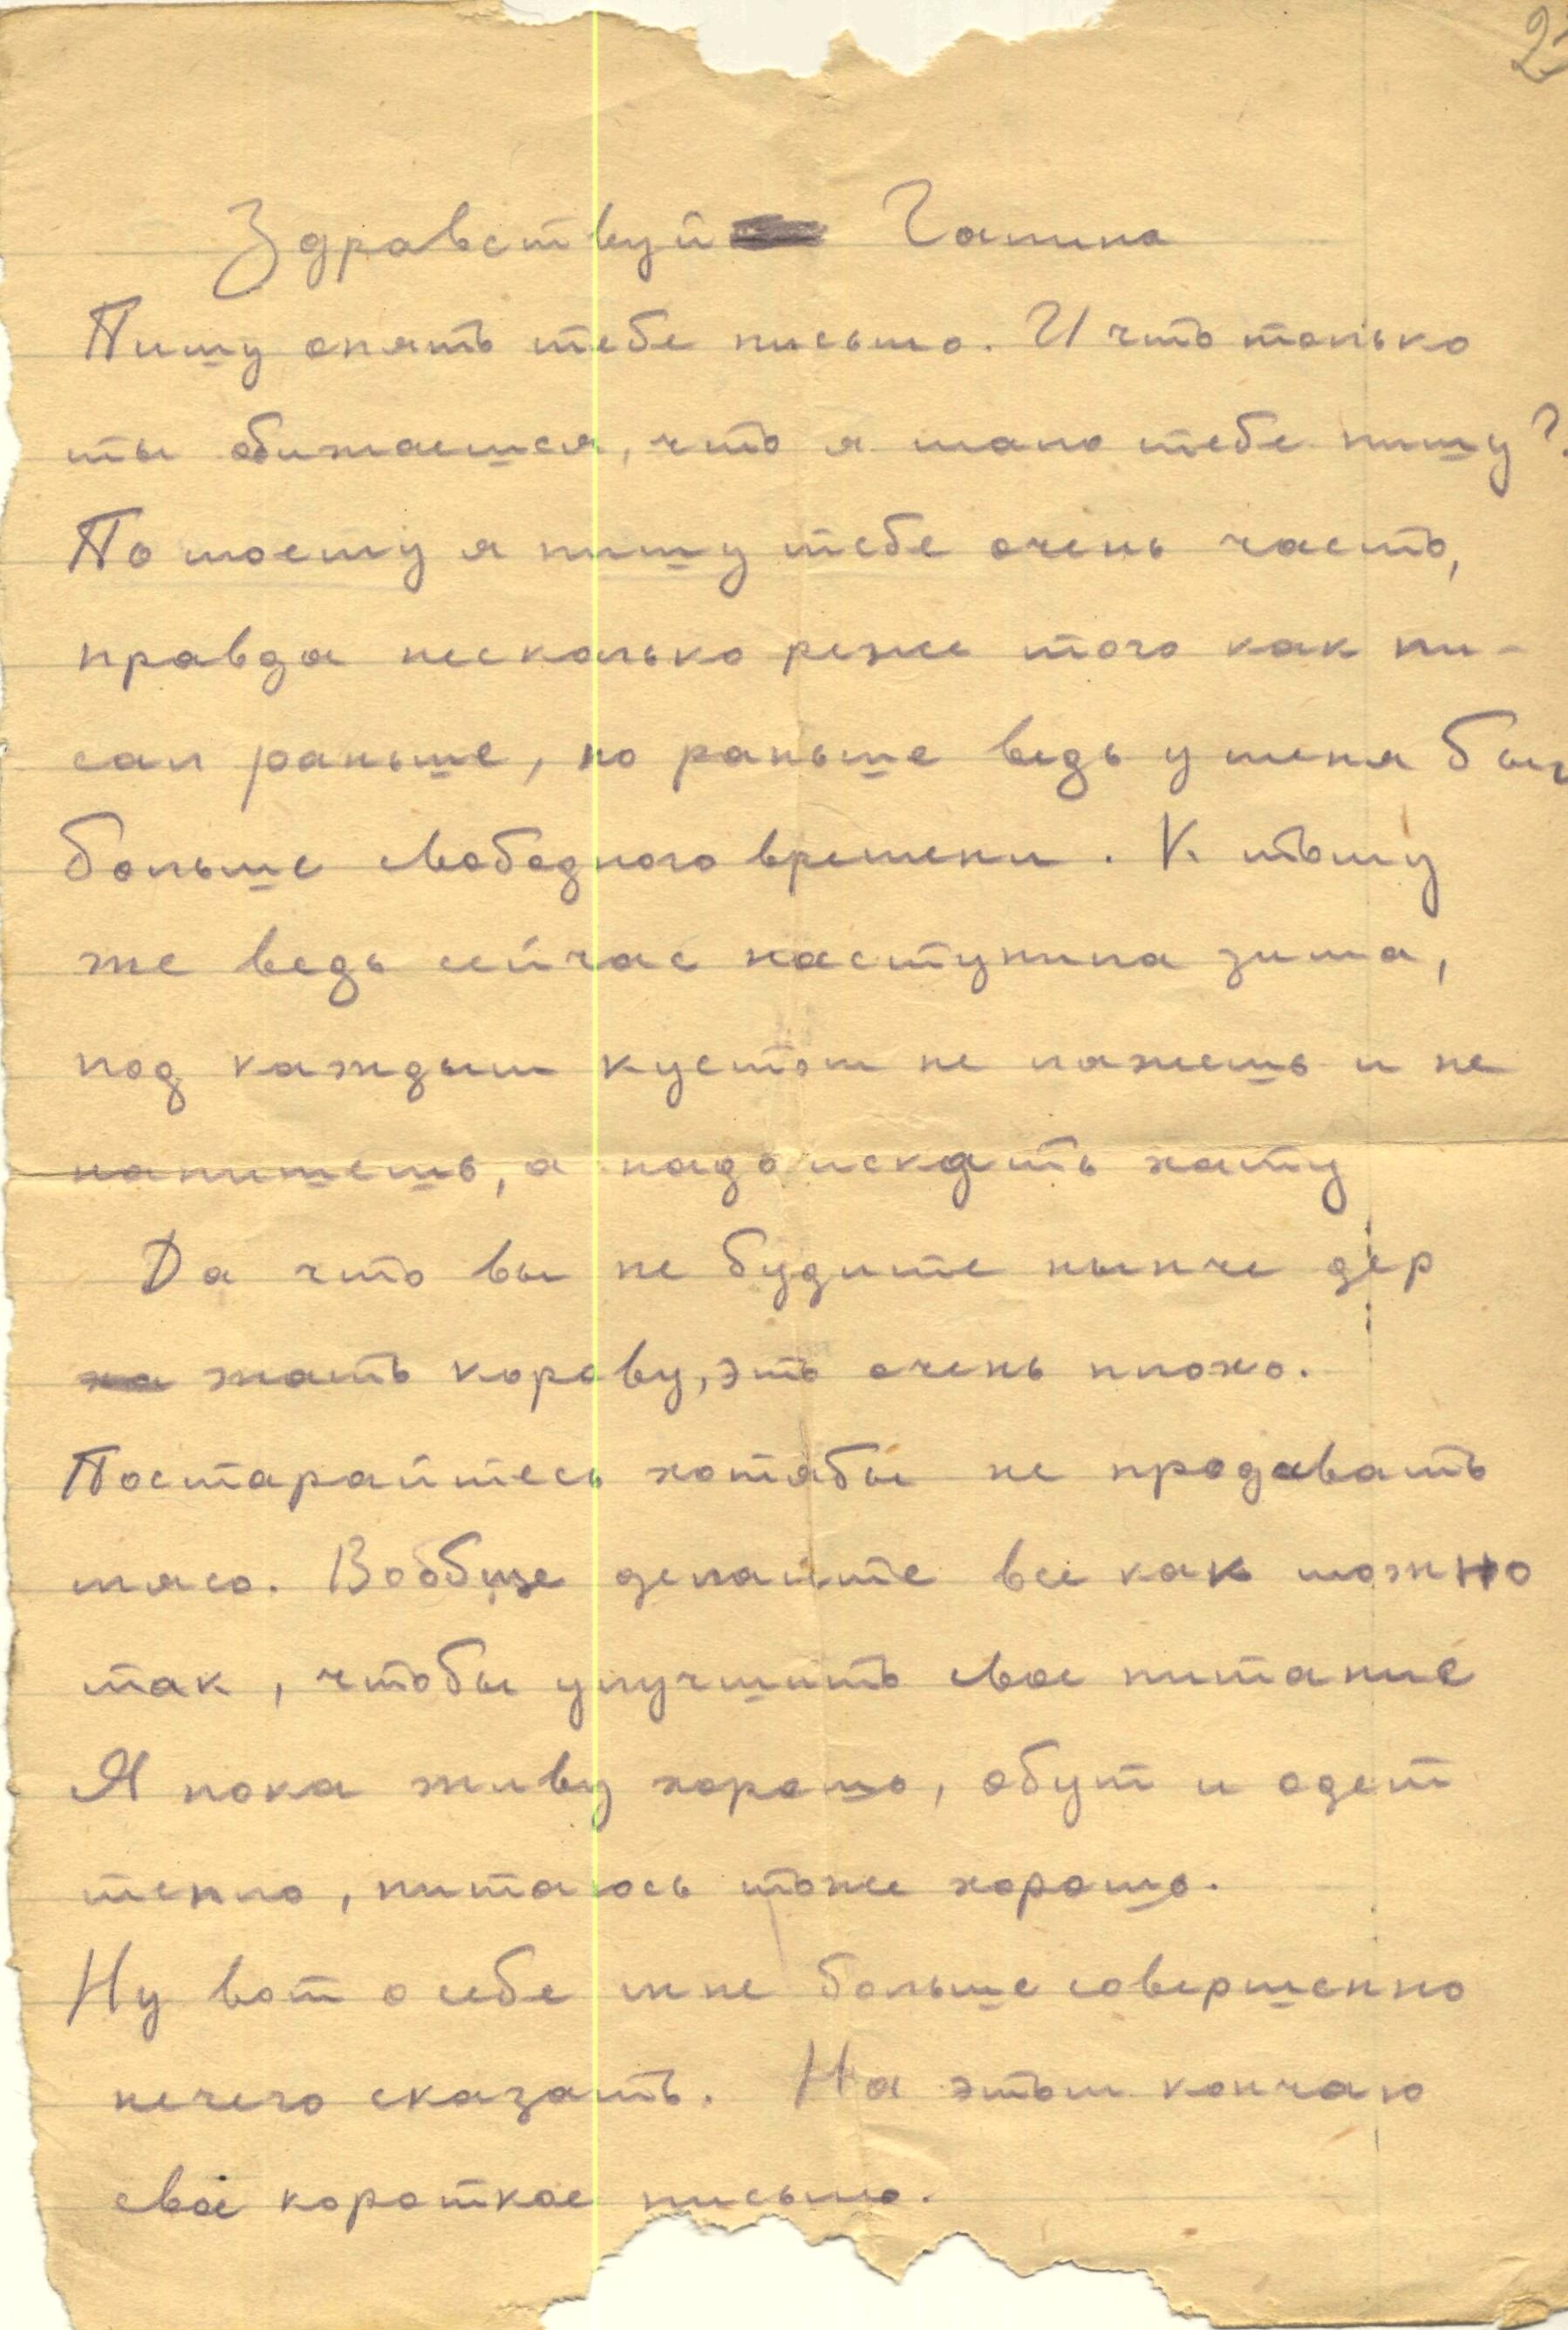 2
Здравствуй Галина
Пишу опять тебе письмо. И что только
ты обижаешся, что я мало тебе пишу?
По моему я пишу тебе очень часто,
правда несколько реже того как пи-
сал раньше, но раньше ведь у меня был
больше свободного времени. К тому
же ведь сейчас наступила зима,
под каждым кустом не ляжешь и не
напишешь, а надо искать хату
Да что вы не будите нынче дер
жать корову, это очень плохо.
Постарайтесь хотябы не продавать
мясо. Вообще делайте все как можно
так, чтобы улучшить свое питание
Я пока живу хорошо, обут и одет
тепло, питаюсь тоже хорошо.
Ну вот о себе мне больше совершенно
нечего сказать. На этом кончаю
свое короткое письмо.